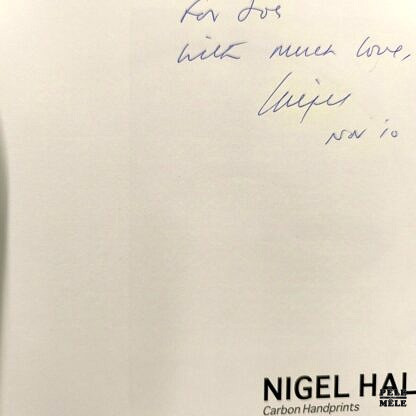 For Joe
with much love,
Nigel
Nov 10
NIGEL HAL
Carbon Handprints
PELE
MÊLE